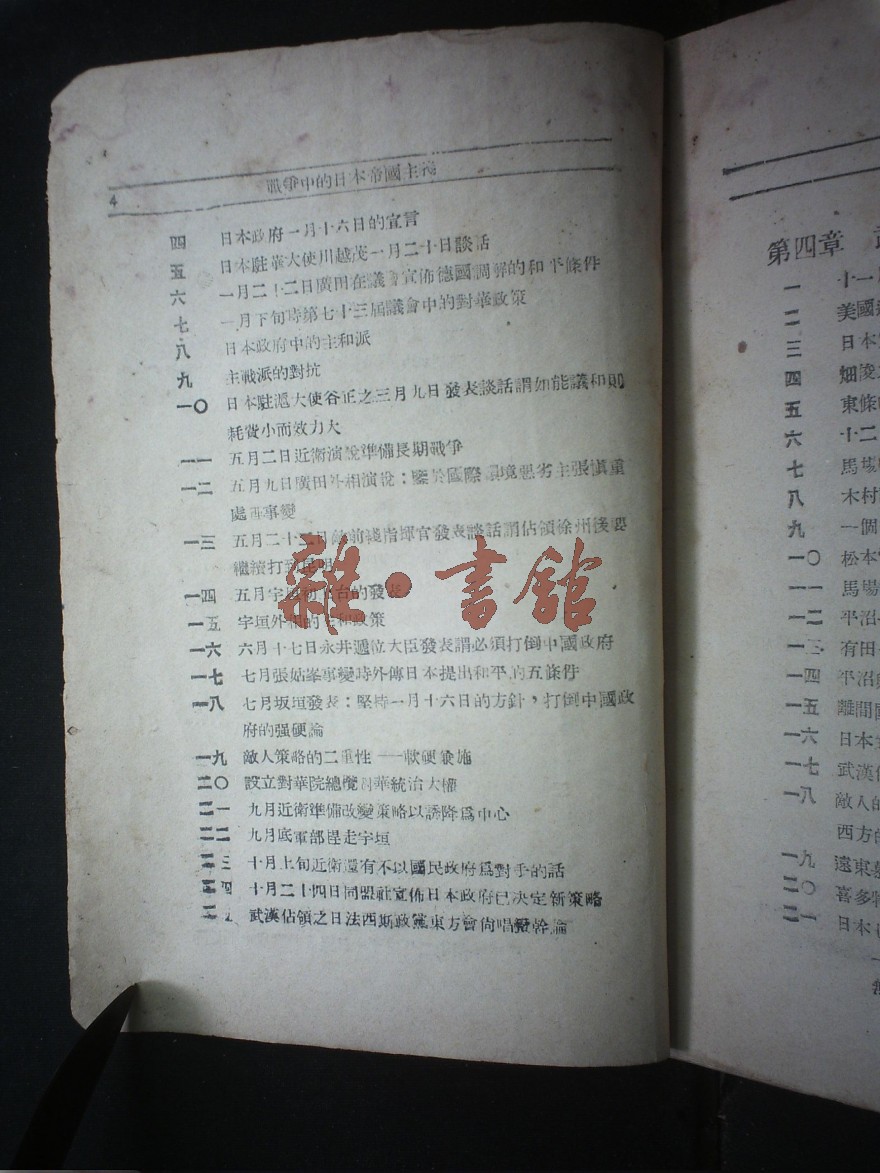 4
戰爭中的日本帝國主義
四 日本政府一月十六日的宣言
五 日本駐華大使川越茂一月二十日談話
六 一月二十二日廣田在議會宣佈德國調解的和平條件
七 一月下旬時第七十三屆議會中的對華政策
八 日本政府中的主和派
九 主戰派的對抗
一〇 日本駐滬大使谷正之三月九日發表談話謂如能議和則
耗費小而效力大
一一 五月二日近衛演說準備長期戰爭
一二 五月九日廣田外相演說：鑒於國際環境惡劣主張慎重
處理事變
一三 五月二十三日敵前綫指揮官發表談話謂佔領徐州後要
繼續打到昆明
雜·書館
一四 五月宇垣的發表
一五 宇垣外相的主和政策
一六 六月十七日永井遞信大臣發表謂必須打倒中國政府
一七 七月張姑峯事變時外傳日本提出和平的五條件
一八 七月坂垣發表：堅持一月十六日的方針，打倒中國政
府的强硬論
一九 敵人策略的二重性——軟硬兼施
二〇 設立對華院總攬對華統治大權
二一 九月近衛準備改變策略以誘降爲中心
二二 九月底軍部趕走宇垣
二三 十月上旬近衛還有不以國民政府爲對手的話
二四 十月二十四日同盟社宣佈日本政府已決定新策略
二五 武漢佔領之日法西斯政黨東方會尙唱蠻幹論
第四章
一 十一
二 美國
三 日本
四 畑
五 東條
六 十二
七 馬場
八 木村
九 一個
一〇 松本
一一 馬場
一二 平沼
一三 有田
一四 平沼
一五 離間
一六 日本
一七 武漢
一八 敵人的
西方的
一九 遠東
二〇 喜多
二一 日本